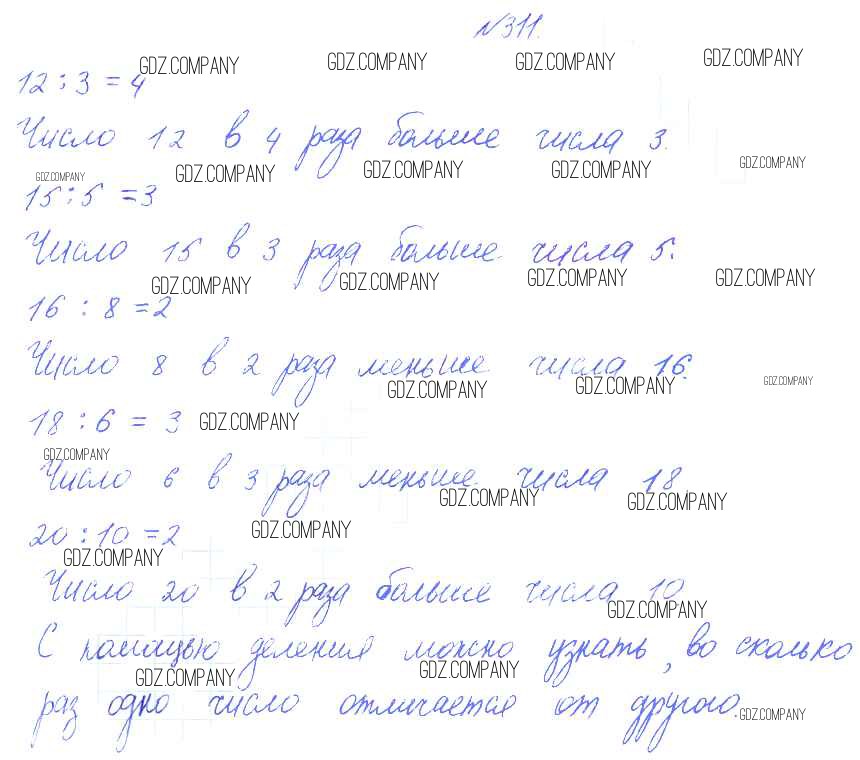 №311.
12 : 3 = 4
Число 12 в 4 раза больше числа 3.
15 : 5 = 3
Число 15 в 3 раза больше числа 5.
16 : 8 = 2
Число 8 в 2 раза меньше числа 16.
18 : 6 = 3
Число 6 в 3 раза меньше числа 18
20 : 10 = 2
Число 20 в 2 раза больше числа 10
С помощью деления можно узнать, во сколько
раз одно число отличается от другого.
GDZ.COMPANY GDZ.COMPANY GDZ.COMPANY GDZ.COMPANY
GDZ.COMPANY GDZ.COMPANY GDZ.COMPANY GDZ.COMPANY GDZ.COMPANY
GDZ.COMPANY GDZ.COMPANY GDZ.COMPANY GDZ.COMPANY
GDZ.COMPANY GDZ.COMPANY GDZ.COMPANY
GDZ.COMPANY
GDZ.COMPANY
GDZ.COMPANY GDZ.COMPANY
GDZ.COMPANY
GDZ.COMPANY
GDZ.COMPANY
GDZ.COMPANY GDZ.COMPANY
GDZ.COMPANY